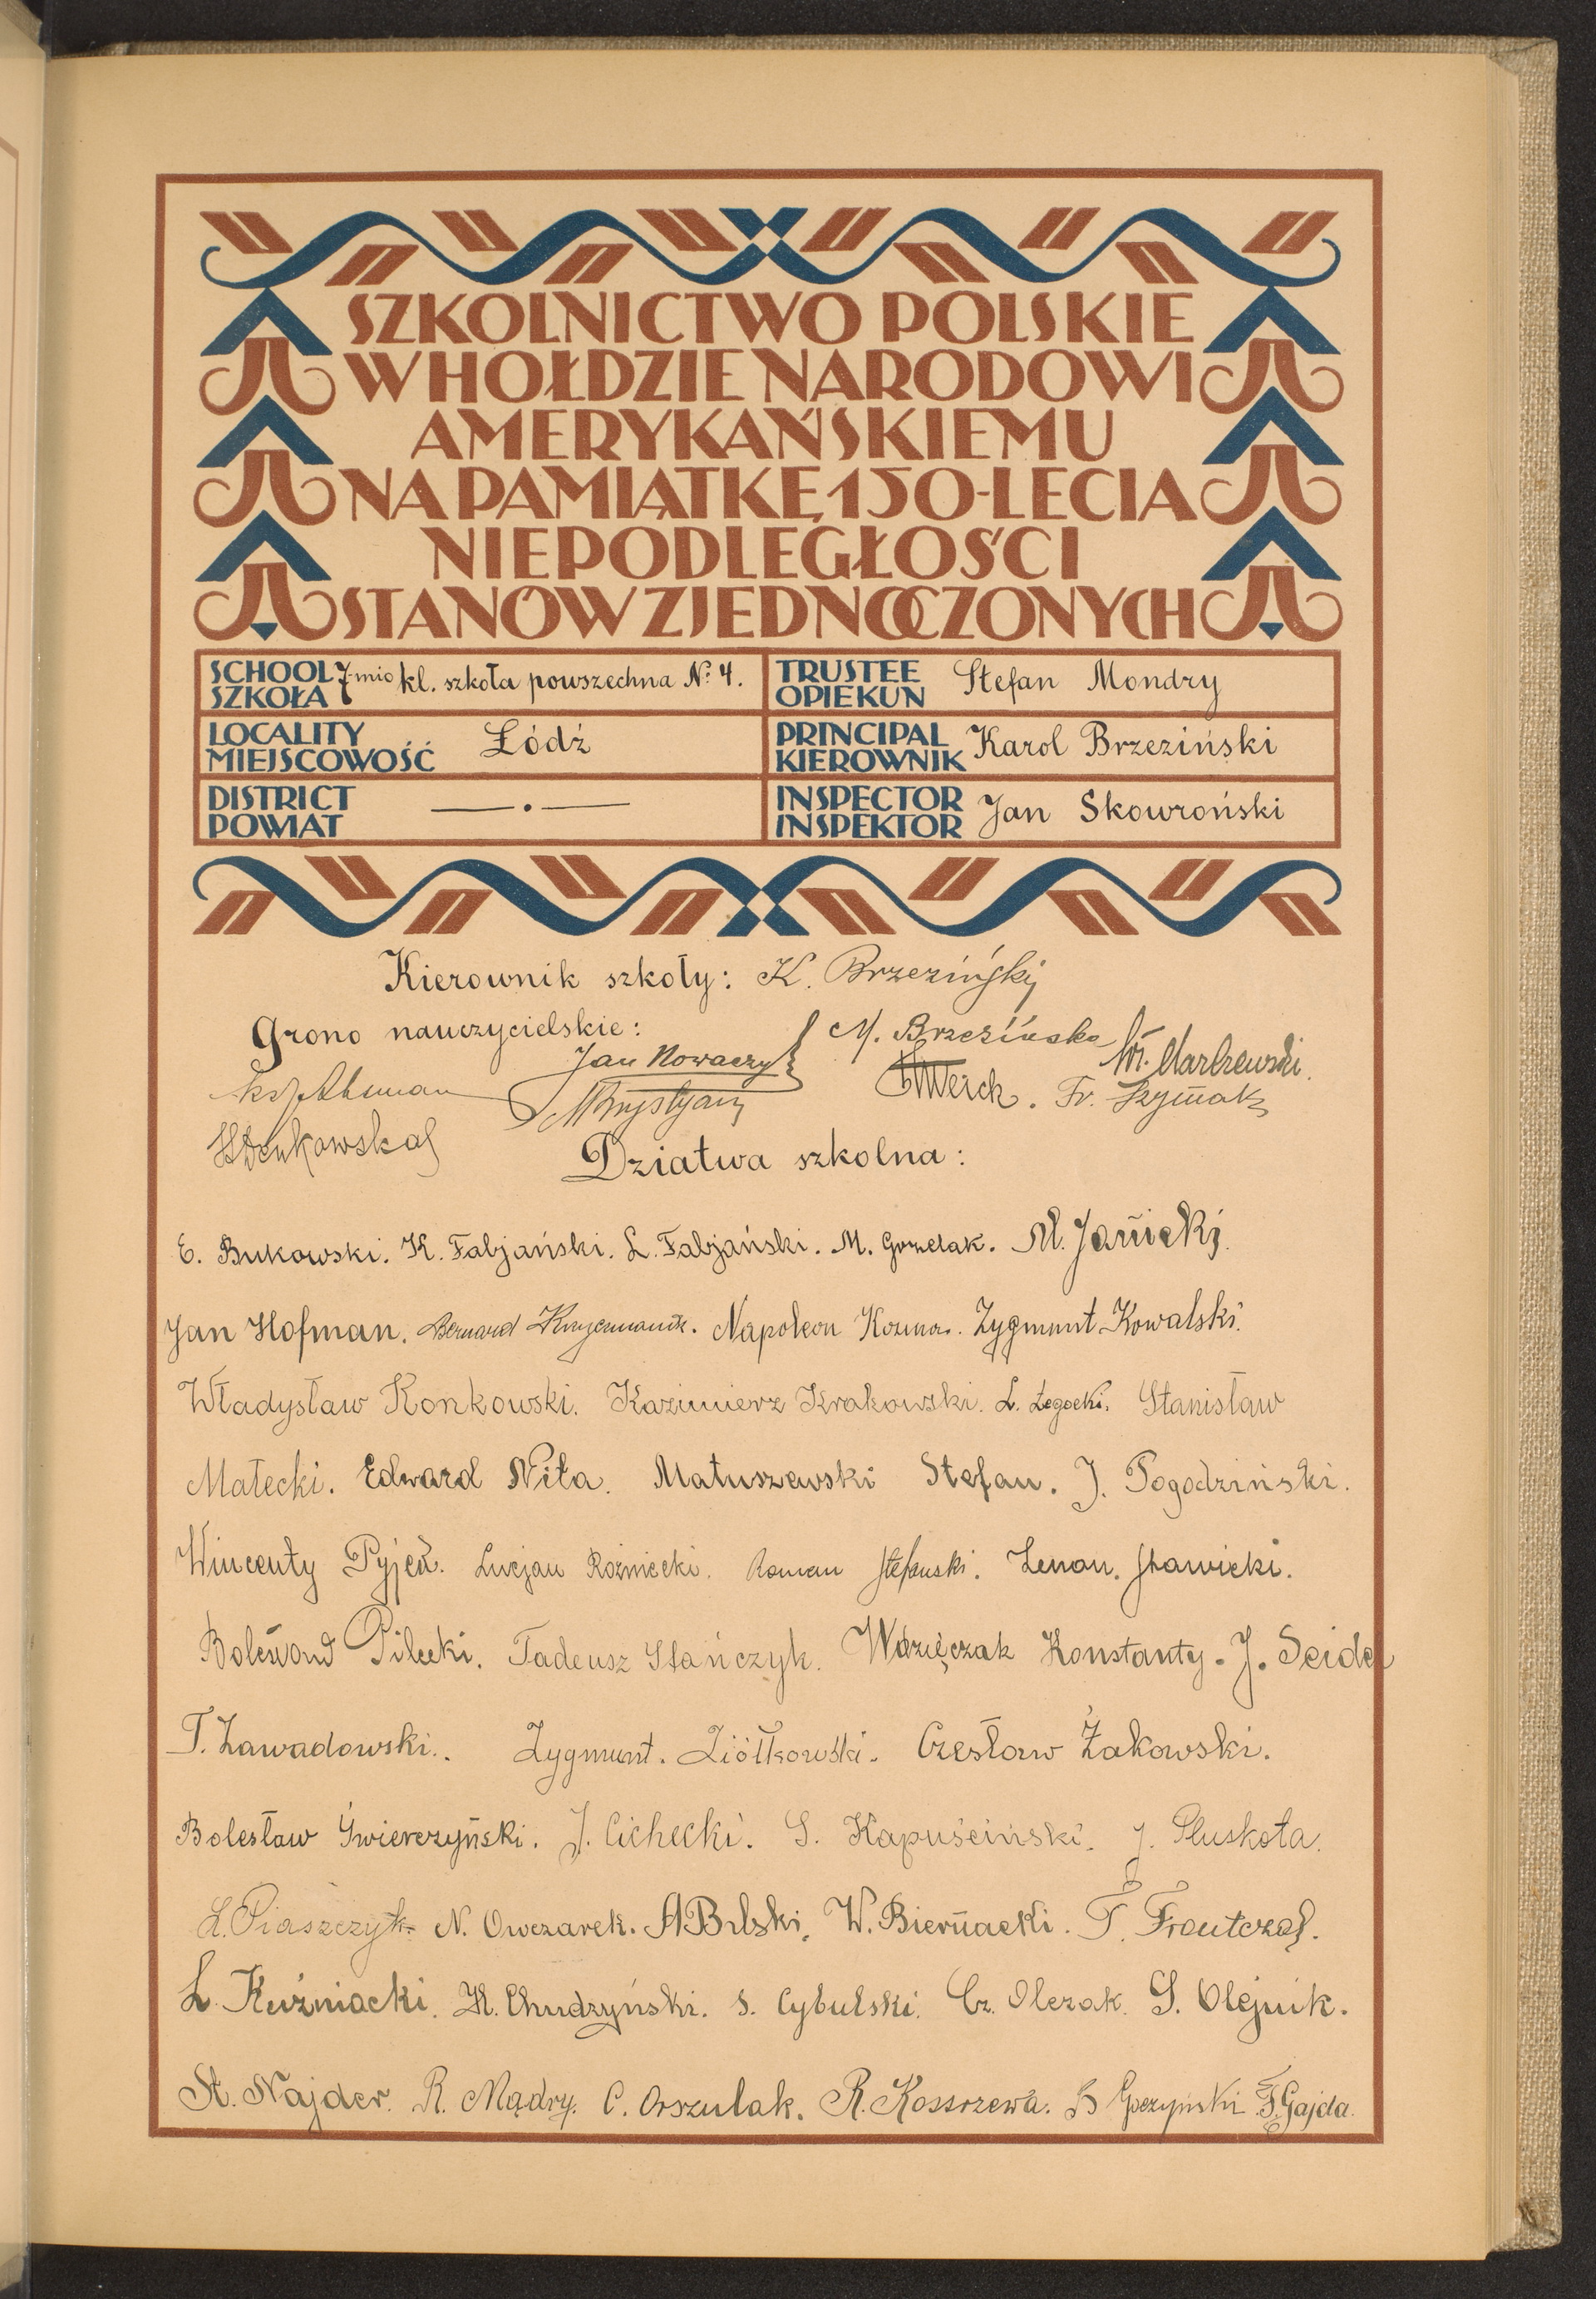 SZKOLNICTWO POLSKIE
W HOŁDZIE NARODOWI
AMERYKAŃSKIEMU
NA PAMIĄTKĘ 150-LECIA
NIEPODLEGŁOŚCI
STANÓW ZJEDNOCZONYCH
SCHOOL SZKOŁA 7-mio kl. szkoła powszechna № 4.
TRUSTEE OPIEKUN Stefan Mondry
LOCALITY MIEJSCOWOŚĆ Łódź
PRINCIPAL KIEROWNIK Karol Brzeziński
DISTRICT POWIAT — . —
INSPECTOR INSPEKTOR Jan Skowroński
Kierownik szkoły: K. Brzeziński
Grono nauczycielskie: M. Brzezińska
Jan Nowaczyk
MKrystyan Fr. Szymak
Dziatwa szkolna:
E. Bukowski. K. Fabjański. L. Fabjański. M. Gorzelak. M. Janicki.
Jan Hofman. Bernard Napoleon Kozman. Zygmunt Kowalski.
Władysław Konkowski. Kazimierz Krakowski. L. Łegocki. Stanisław
Małecki. Edward Nita. Matuszewski Stefan. J. Pogodziński.
Wincenty Pyjeń. Lucjan Roźniecki. Roman Stefański. Zenon. Sławicki.
Pilecki. Tadeusz Stańczyk. Wdzięczak Konstanty. J. Seidel
T. Zawadowski. Zygmunt. Ziółkowski. Czesław Żakowski.
Bolesław Świerczyński. J. Cichecki. S. Kapuściński. J. Pluskota.
L. Piaszczyk. N. Owczarek. A Bilski. W. Biernacki. F. Frontczak.
L. Kuźniacki. K. Chudzyński. S. Cybulski. Cz. Olczak. S. Olejnik.
St. Najder. R. Mądry. C. Orszulak. R. Kossrzewa. B Goczyński F. Gajda.